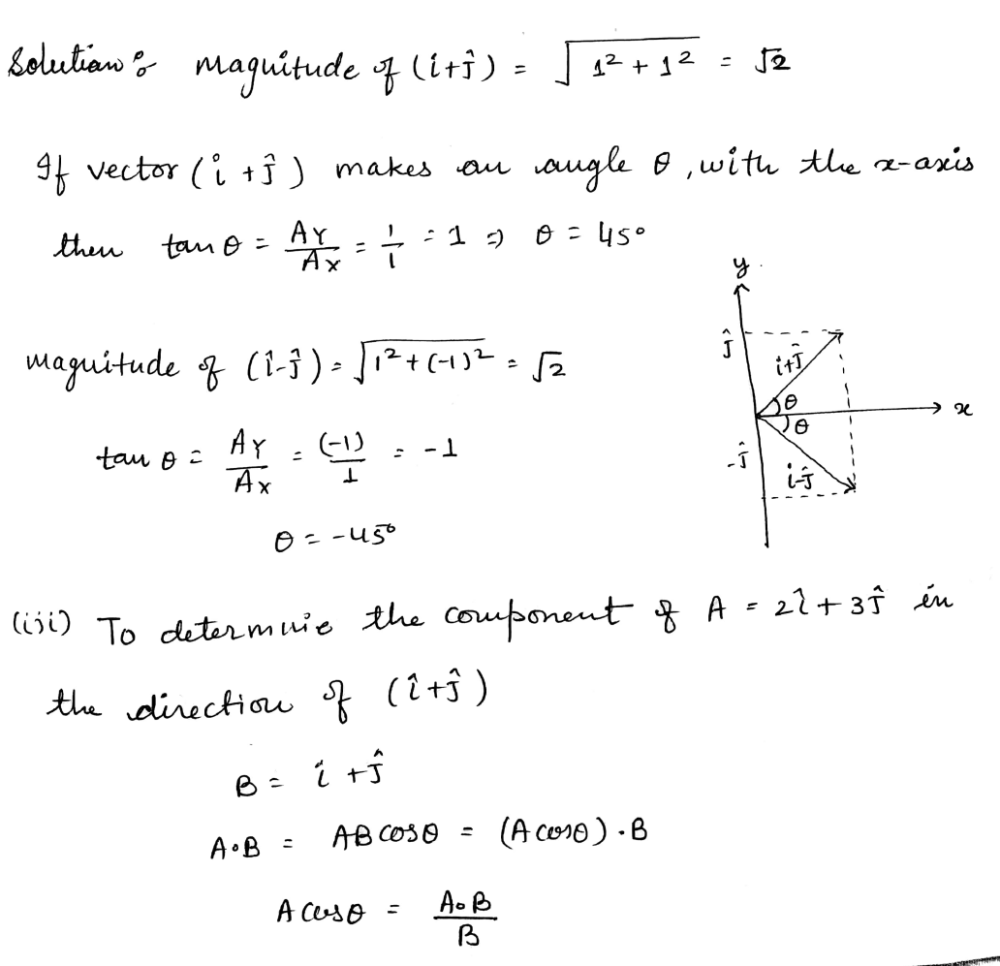 Solution : magnitude of (î+ĵ) = √(1² + 1²) = √2
If vector (î + ĵ) makes an angle θ, with the x-axis
then tan θ = AY/Ax = 1/1 = 1 ⇒ θ = 45°
y
magnitude of (î-ĵ) = √(1² + (-1)²) = √2
ĵ
i+ĵ
θ
x
θ
tan θ = AY/Ax = (-1)/1 = -1
-ĵ
i-ĵ
θ = -45°
(iii) To determine the component of A = 2î + 3ĵ in
the direction of (î+ĵ)
B = î + ĵ
A•B = AB cosθ = (A cosθ) • B
A cosθ = A•B/B